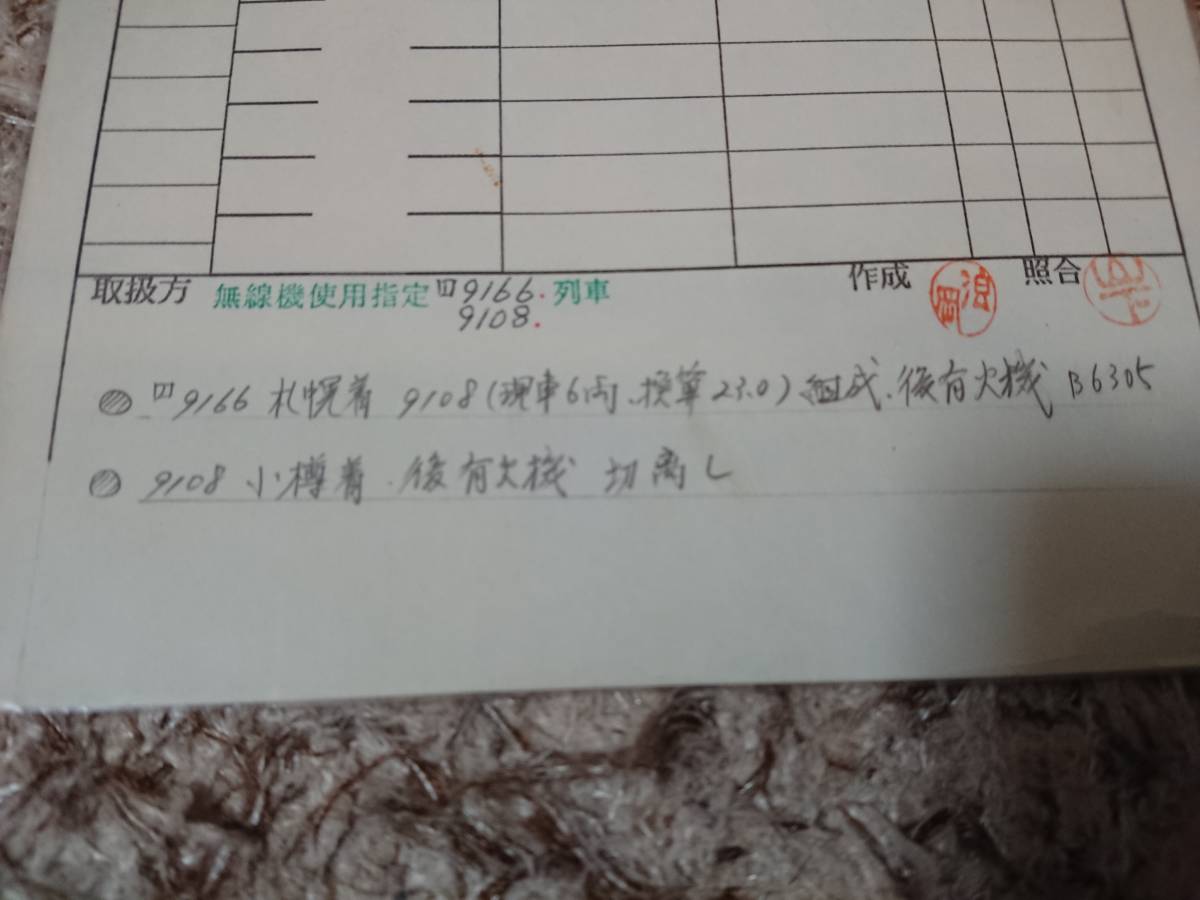 取扱方 無線機使用指定 回9166. 列車 作成 浪岡 照合 山下
9108.
回9166 札幌着 9108(現車6両、換算23.0)、組成、後有火機 B6305
9108 小樽着、後有火機 切離し